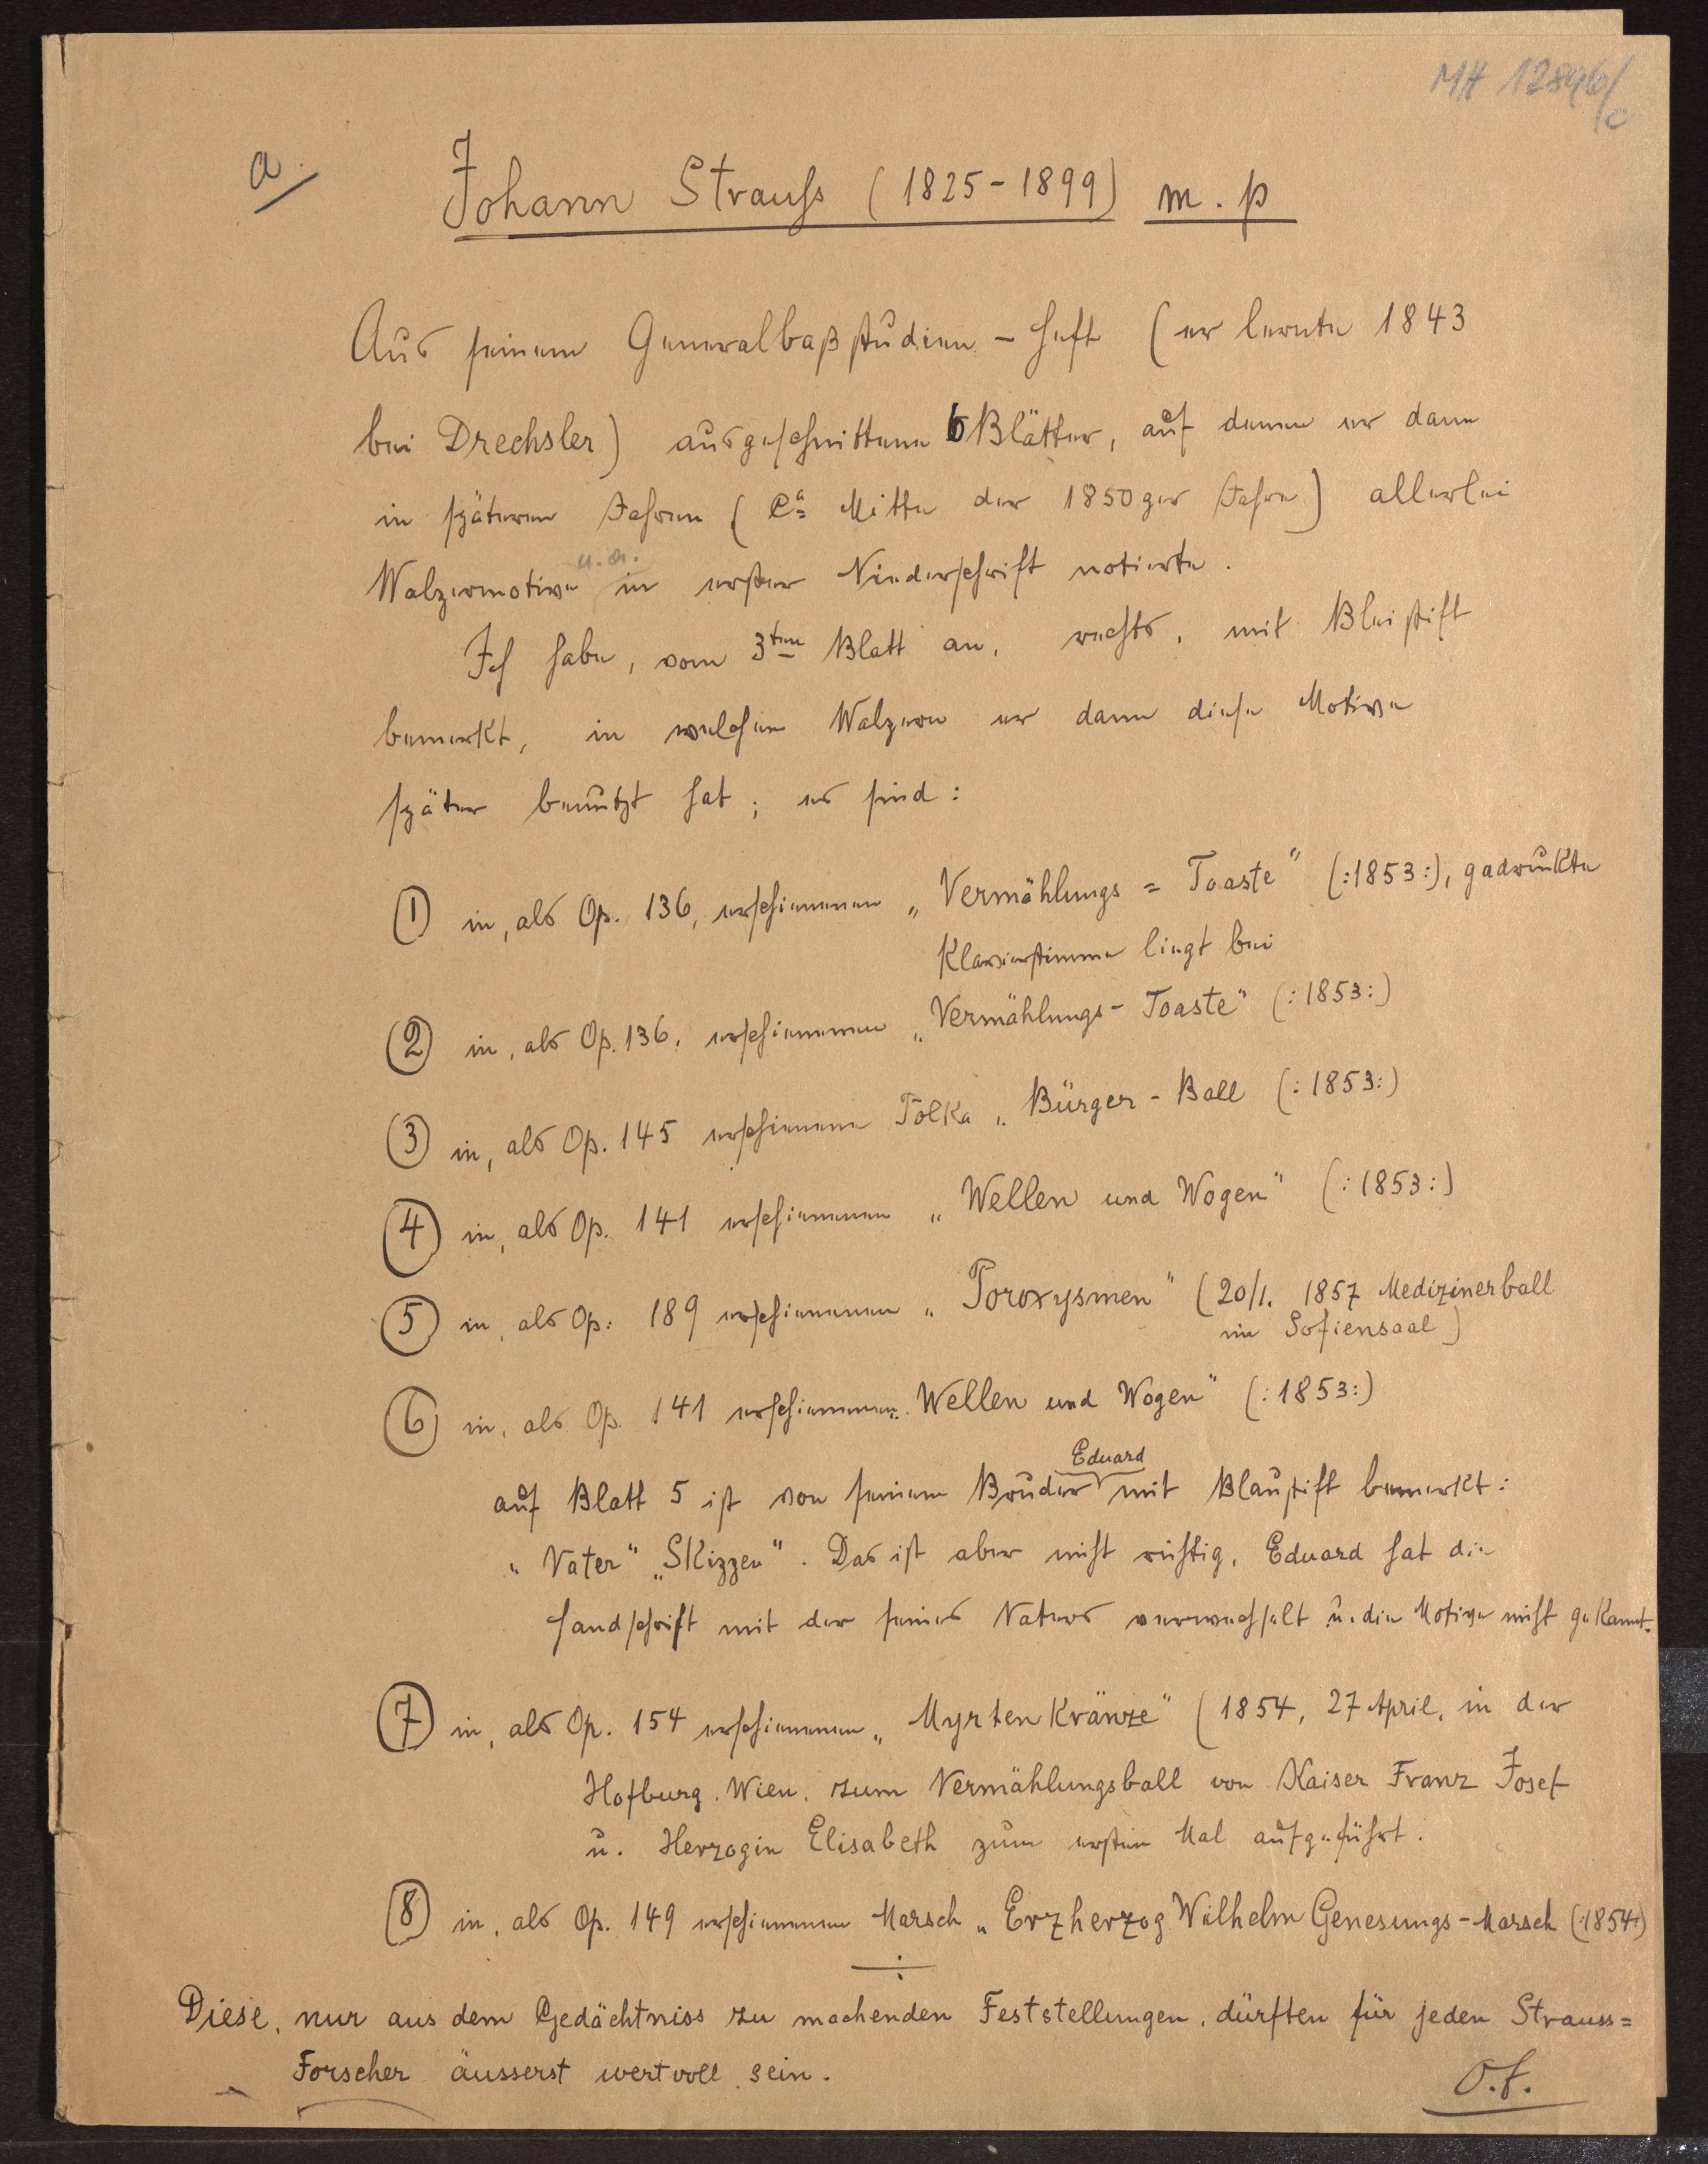 MH 12846/c
a
Johann Strauss (1825-1899) m.p
Aus seinem Generalbaßstudien - Heft (er lernte 1843
bei Drechsler) ausgeschnittene 6 Blätter, auf denen er dann
in späteren Jahren (ca Mitte der 1850ger Jahre) allerlei
u.a.
Walzermotive in erster Niederschrift notierte.
Ich habe, vom 3ten Blatt an, rechts, mit Bleistift
bemerkt, in welchen Walzern er dann diese Motive
später benützt hat; es sind:
① in, als Op. 136, erschienenen „Vermählungs = Toaste" (:1853:), gedruckte
Klavierstimme liegt bei
② in, als Op. 136, erschienenen „Vermählungs - Toaste" (:1853:)
③ in, als Op. 145 erschienene Polka „Bürger - Ball (:1853:)
④ in, als Op. 141 erschienenen „Wellen und Wogen" (:1853:)
⑤ in, als Op: 189 erschienenen „Paroxysmen" (20/1. 1857 Medizinerball
im Sofiensaal)
⑥ in, als Op. 141 erschienenen „Wellen und Wogen" (:1853:)
Eduard
auf Blatt 5 ist von seinem Bruder mit Blaustift bemerkt:
„Vater" „Skizzen". Das ist aber nicht richtig, Eduard hat die
Handschrift mit der seines Vaters verwechselt u. die Motive nicht gekannt.
⑦ in, als Op. 154 erschienenen „Myrten Kränze" (1854, 27 April, in der
Hofburg. Wien. zum Vermählungsball von Kaiser Franz Josef
u. Herzogin Elisabeth zum ersten Mal aufgeführt.
⑧ in, als Op. 149 erschienenen Marsch „Erzherzog Wilhelm Genesungs - Marsch (:1854:)
Diese, nur aus dem Gedächtniss zu machenden Feststellungen, dürften für jeden Strauss=
Forscher äusserst wertvoll sein.
O.f.